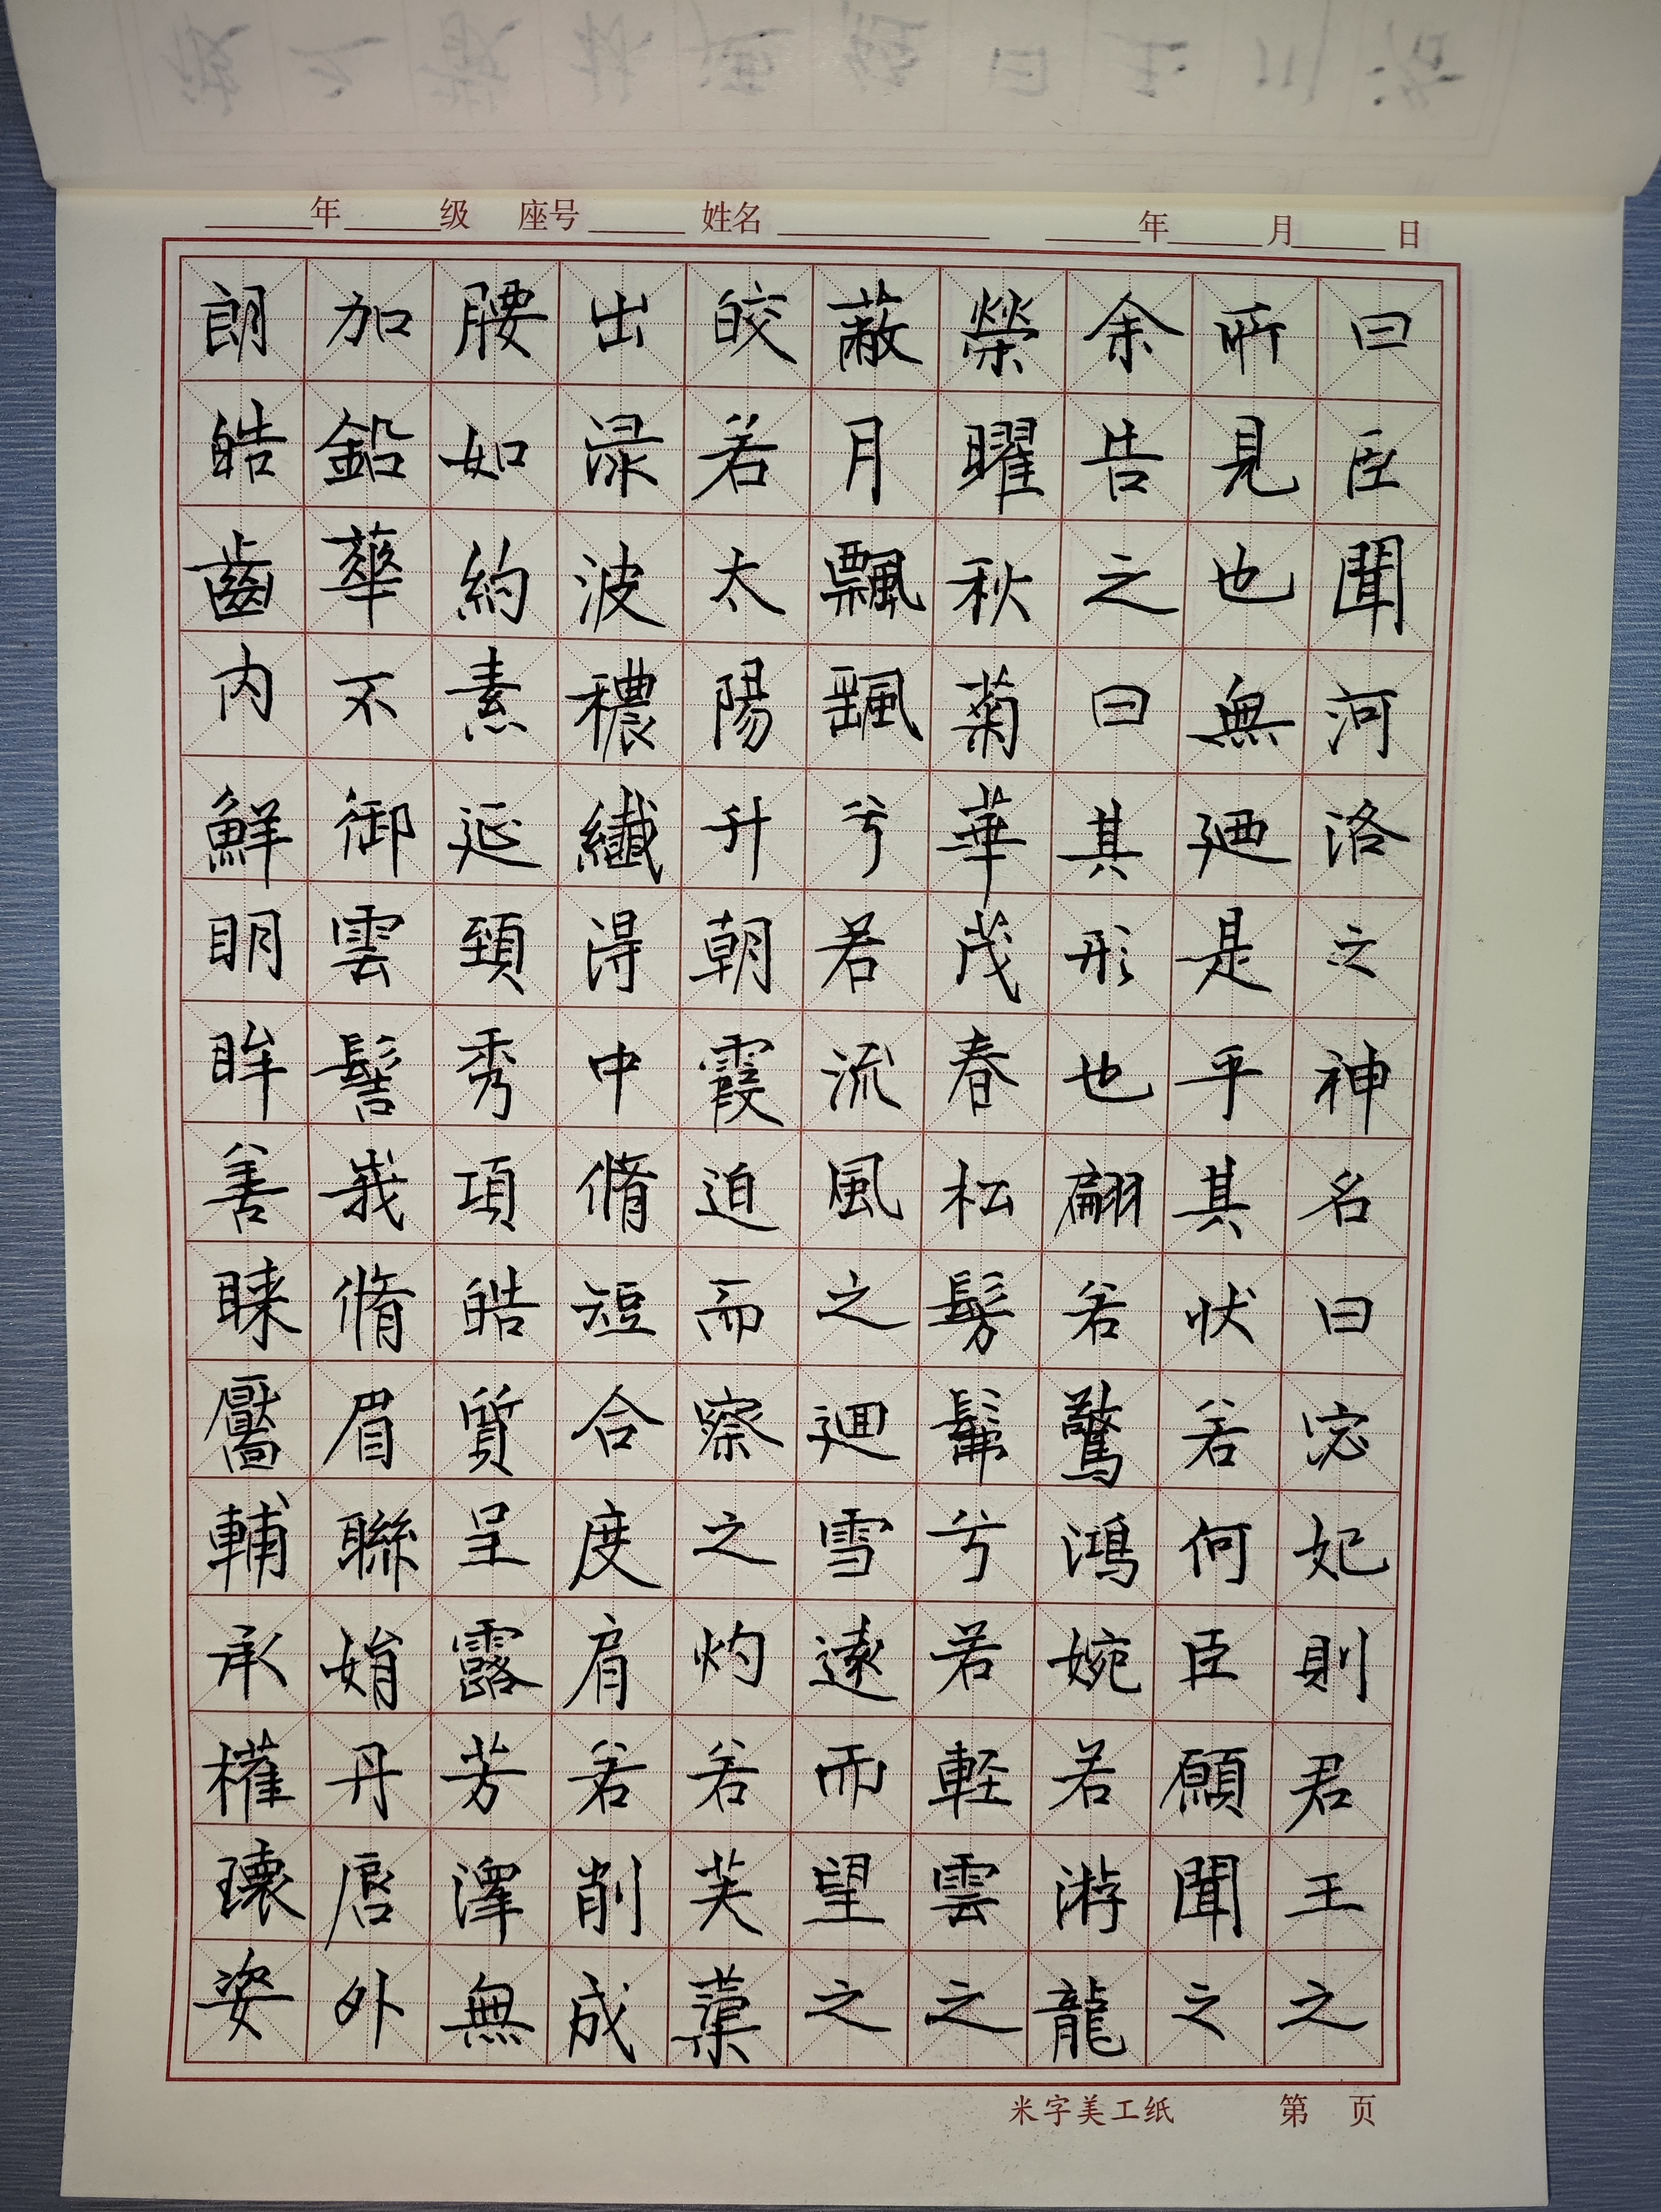 年 级 座号 姓名 年 月 日
曰臣聞河洛之神名曰宓妃則君王之
所見也無廼是乎其狀若何臣願聞之
余告之曰其形也翩若驚鴻婉若游龍
榮曜秋菊華茂春松髣髴兮若軽雲之
蔽月飄颻兮若流風之迴雪遠而望之
皎若太陽升朝霞迫而察之灼若芙蕖
出渌波穠纖得中脩短合度肩若削成
腰如約素延頸秀項皓質呈露芳澤無
加鉛華不御雲髻峩脩眉聯娟丹唇外
朗皓齒内鮮明眸善睞靨輔承權瓌姿
米字美工纸 第 页